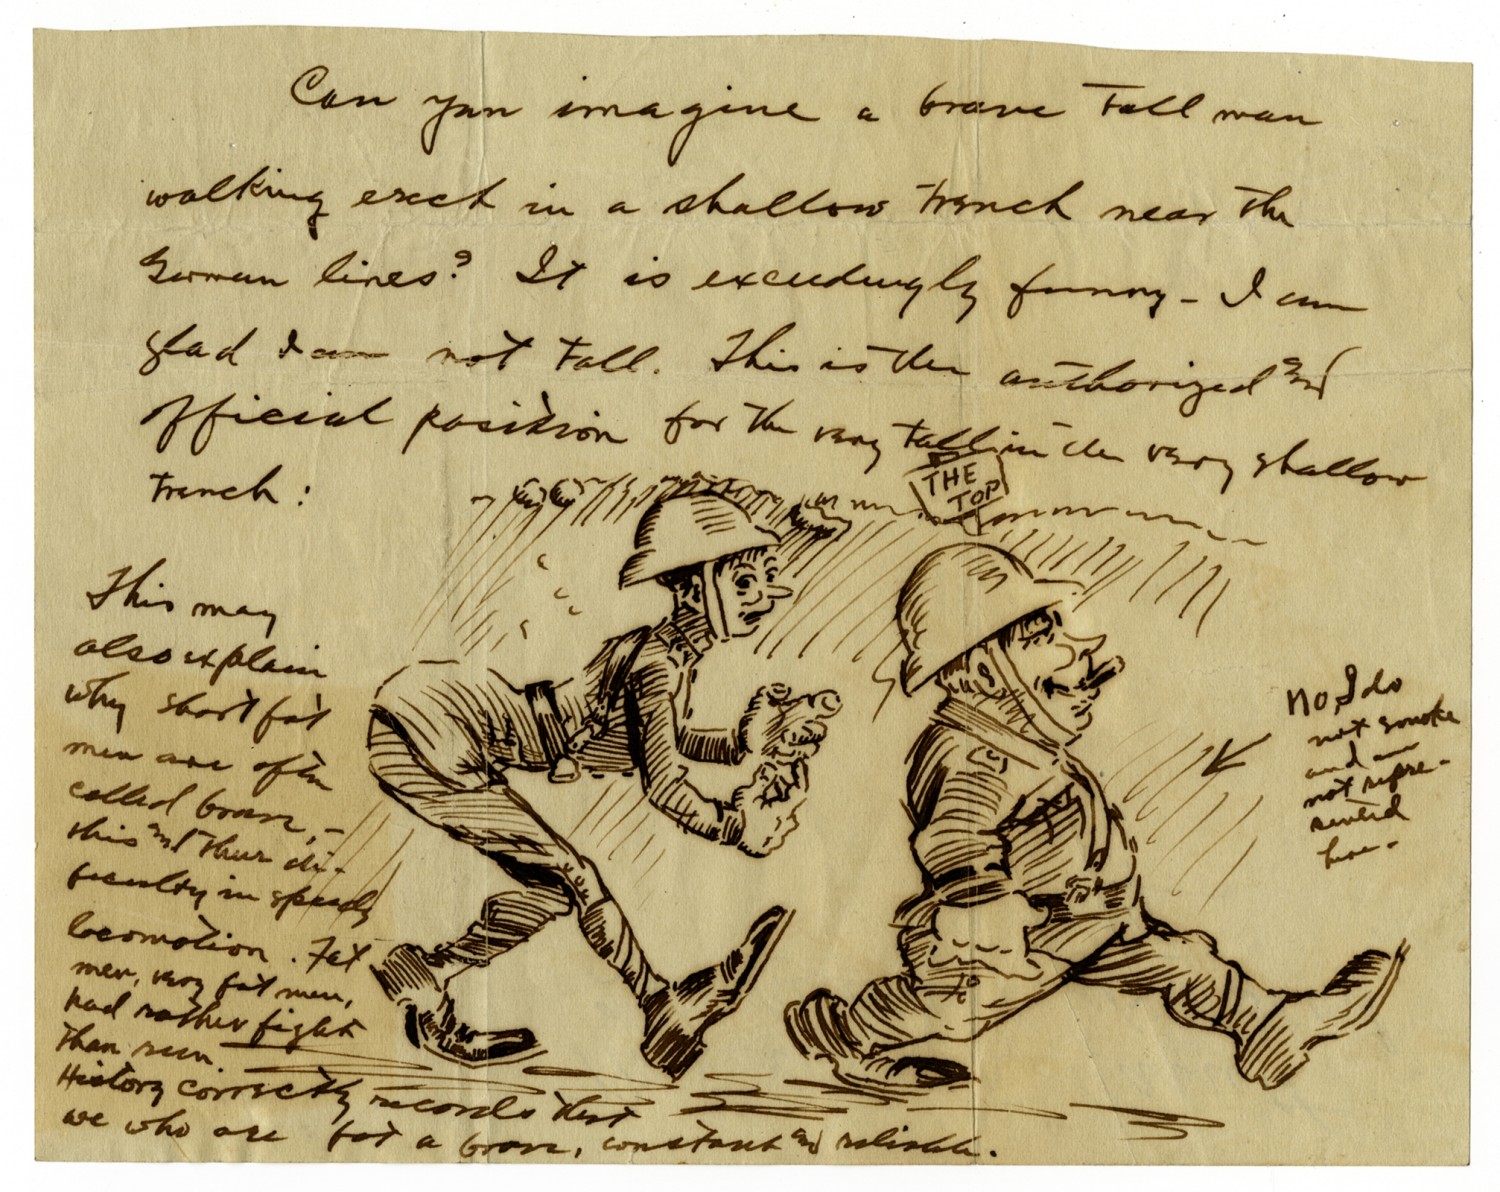 Can you imagine a brave tall man
walking erect in a shallow trench near the
German lines? It is exceedingly funny - I am
glad I am not tall. This is the authorized and
official position for the very tall in the very shallow
trench:
THE
TOP
This may
also explain
why short fat
men are often
called brave, -
this and their di-
ficulty in speedy
locomotion. Fat
men, very fat men,
had rather fight
than run.
History correctly records that
we who are fat are brave, constant and reliable.
No, I do
not smoke
and am
not repre-
sented
here -